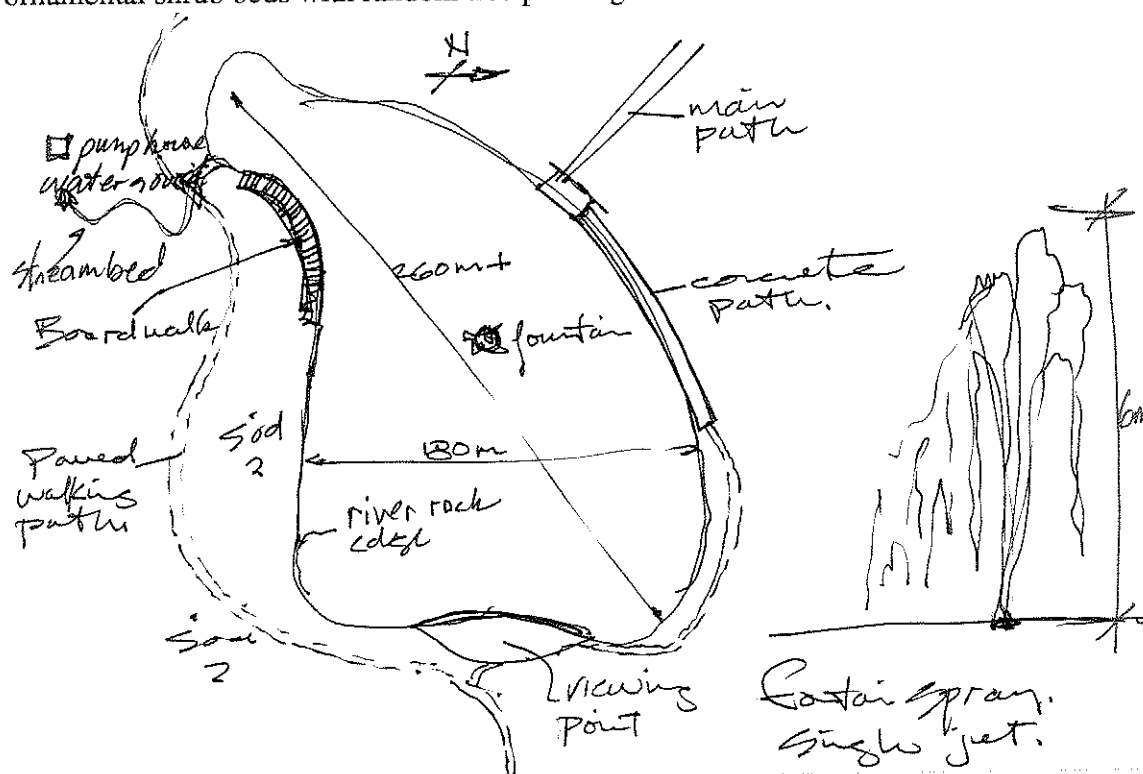 ornamental shrub beds with random tree planting
N
main
path
pumphouse
water source
streambed
Boardwalk
260m+
concrete
path.
fountain
6m
Sod
2
180m
Paved
walking
path.
river rock
edge
Sod
2
viewing
point
Fontain spray.
Single jet.